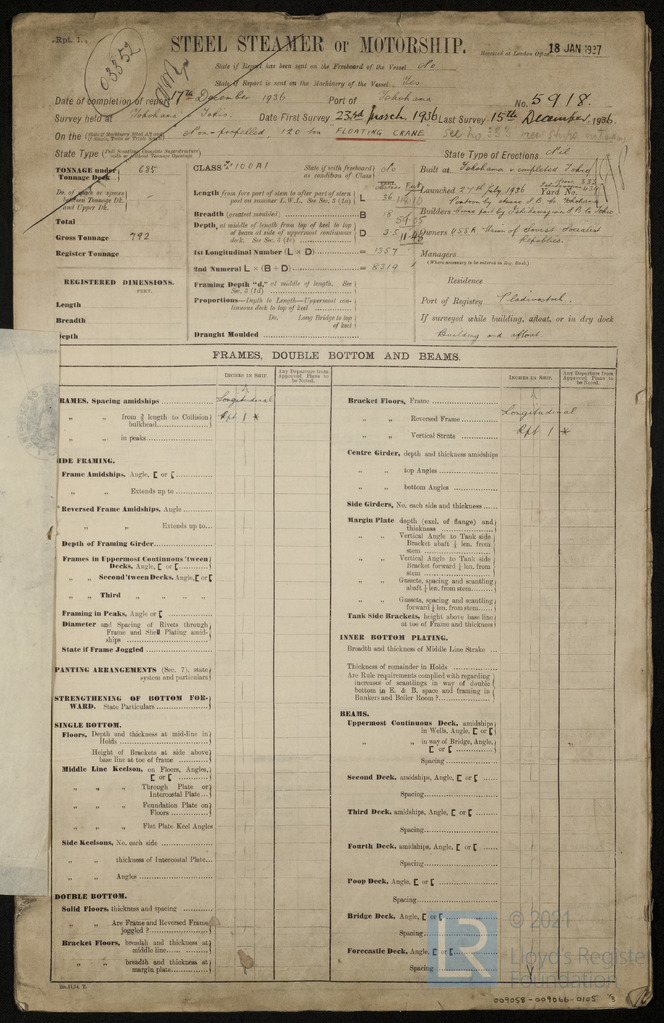 Rpt. 1.
03352
STEEL STEAMER or MOTORSHIP.
Received at London Office 18 JAN 1937
State if Report has been sent on the Freeboard of the Vessel No
State if Report is sent on the Machinery of the Vessel Yes
Date of completion of report 17th December 1936 Port of Yokohama No. 5918.
Survey held at Yokohama Tokio. Date First Survey 23rd March, 1936 Last Survey 15th December, 1936.
On the Non-propelled, 120 ton FLOATING CRANE
State Type
State Type of Erections Nil
TONNAGE under Tonnage Deck 685
CLASS 100A1
State if with freeboard as condition of Class No
Built at Yokohama & completed Tokio
Do. of space or spaces between Tonnage Dk. and Upper Dk.
Total
Gross Tonnage 792
Register Tonnage
Length from fore part of stem to after part of stern post on summer L.W.L. See Sec. 3 (1a) L 36
Breadth (greatest moulded) B 18
Depth, at middle of length from top of keel to top of beam at side of uppermost continuous deck. See Sec. 3 (1c) D 3.5
1st Longitudinal Number (L × D) = 1357
2nd Numeral L × (B + D) = 8214
Framing Depth "d," at middle of length. See Sec. 3 (1d)
Proportions—Depth to Length—Uppermost continuous deck to top of keel
Do. Long Bridge to top of keel
Draught Moulded
Launched 27th July 1936 Yard No.
Builders
Owners USSR Union of Soviet Socialist Republics.
Managers
(Where necessary to be entered in Reg. Book.)
Residence
Port of Registry Vladivostock.
If surveyed while building, afloat, or in dry dock
Building and afloat
REGISTERED DIMENSIONS.
FEET.
Length
Breadth
Depth
FRAMES, DOUBLE BOTTOM AND BEAMS.
INCHES IN SHIP.
Any Departure from Approved Plans to be Noted.
FRAMES, Spacing amidships Longitudinal
" " from 3/5 length to Collision bulkhead Rpt 1 *
" " in peaks
SIDE FRAMING.
Frame Amidships, Angle, [ or [
" " Extends up to
Reversed Frame Amidships, Angle
" " Extends up to
Depth of Framing Girder
Frames in Uppermost Continuous 'tween Decks, Angle, [ or [
" Second 'tween Decks, Angle, [ or [
" Third " " " "
Framing in Peaks, Angle or [
Diameter and Spacing of Rivets through Frame and Shell Plating amidships
State if Frame Joggled
PANTING ARRANGEMENTS (Sec. 7), state system and particulars
STRENGTHENING OF BOTTOM FORWARD. State Particulars
SINGLE BOTTOM.
Floors, Depth and thickness at mid-line in Holds
Height of Brackets at side above base line at toe of frame
Middle Line Keelson, on Floors, Angles, [ or [
" " " Through Plate or Intercostal Plate
" " " Foundation Plate on Floors
" " " Flat Plate Keel Angles
Side Keelsons, No. each side
" " thickness of Intercostal Plate
" " Angles
DOUBLE BOTTOM.
Solid Floors, thickness and spacing
" " Are Frame and Reversed Frame joggled?
Bracket Floors, breadth and thickness at middle line
" " breadth and thickness at margin plate
INCHES IN SHIP.
Any Departure from Approved Plans to be Noted.
Bracket Floors, Frame Longitudinal
" " Reversed Frame
" " Vertical Struts Rpt 1 *
Centre Girder, depth and thickness amidships
" " top Angles
" " bottom Angles
Side Girders, No. each side and thickness
Margin Plate depth (excl. of flange) and thickness
" " Vertical Angle to Tank side Bracket abaft ¼ len. from stem
" " Vertical Angle to Tank side Bracket forward ¼ len. from stem
" " Gussets, spacing and scantling abaft ¼ len. from stem
" " Gussets, spacing and scantling forward ¼ len. from stem
Tank Side Brackets, height above base line at toe of Frame and thickness
INNER BOTTOM PLATING.
Breadth and thickness of Middle Line Strake
Thickness of remainder in Holds
Are Rule requirements complied with regarding increases of scantlings in way of double bottom in E. & B. space and framing in Bunkers and Boiler Room?
BEAMS.
Uppermost Continuous Deck, amidships in Wells, Angle, [ or [
" " in way of Bridge, Angle, [ or [
Spacing
Second Deck, amidships, Angle, [ or [
Spacing
Third Deck, amidships, Angle, [ or [
Spacing
Fourth Deck, amidships, Angle, [ or [
Spacing
Poop Deck, Angle, [ or [
Spacing
Bridge Deck, Angle, [ or [
Spacing
Forecastle Deck, Angle, [ or [
Spacing
© 2021
Lloyd's Register
Foundation
LR
009058-009066-0105 1/3